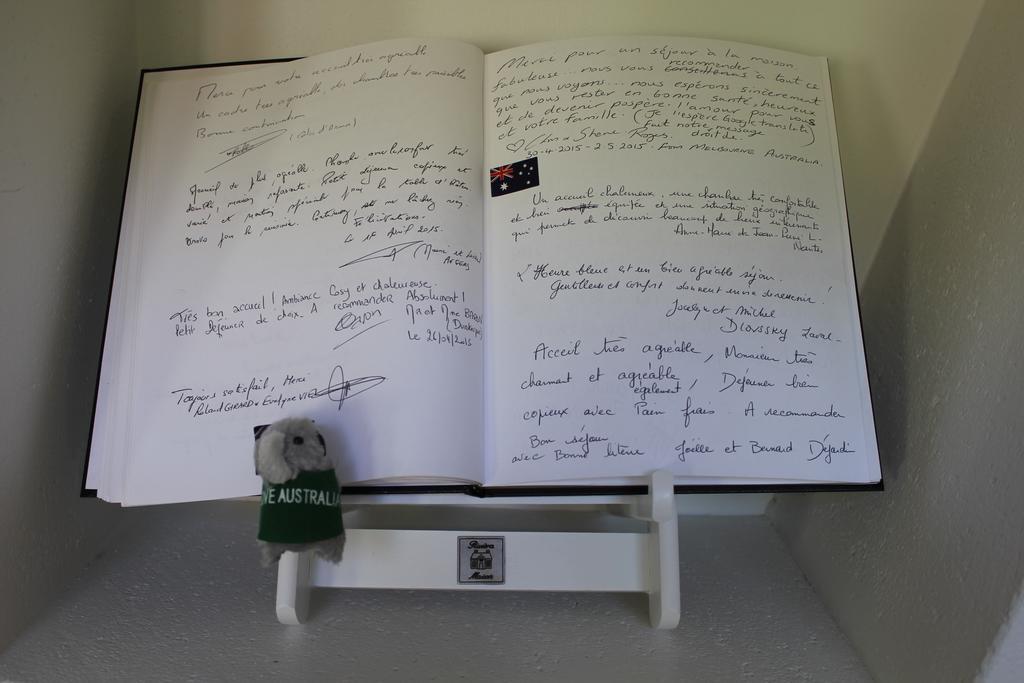 Merci pour votre accueil très agréable
Un cadre très agréable, des chambres très paisibles
Bonne continuation
Accueil des plus agréable. Chambre
double, maison Petit déjeuner copieux et
varié et pour la table d'
Félicitations.
Le 17 Avril 2015.
ANGERS
Très bon accueil ! Ambiance Cosy et chaleureuse.
Petit Déjeuner de choix. A recommander Absolument !
Mr et Mme
(Dunkerque)
Le 26/04/2015
Toujours satisfait, Merci
Roland GIRARD & Evelyne
Merci pour un séjour à la maison
fabuleuse... nous vous recommander à tout ce
que nous voyons... nous espérons sincèrement
que vous rester en bonne santé, heureux
et de devenir pospère. l'amour pour vous
et votre famille. (Je l'espère Google translate)
fait notre message
droit de.
♡ & Shane
30-4-2015 - 2-5-2015. From MELBOURNE AUSTRALIA.
Un accueil chaleureux, une chambre très confortable
et bien équipée et une situation géographique
qui permet de découvrir beaucoup de lieux intéressants
Anne-Marie & Jean-Louis L.
Nantes
L'Heure bleue est un bien agréable séjour.
Gentillesse et confort donnent envie de revenir. !
Jocelyn et Michel
DLOUSSKY Laval-
Acceil très agréable, Monsieur très
charmant et agréable également, Déjeuner bien
copieux avec Pain frais. A recommander
Bon séjour
avec Bonne literie Joëlle et Bernard Déjardin
VE AUSTRALIA
Riviera
Maison